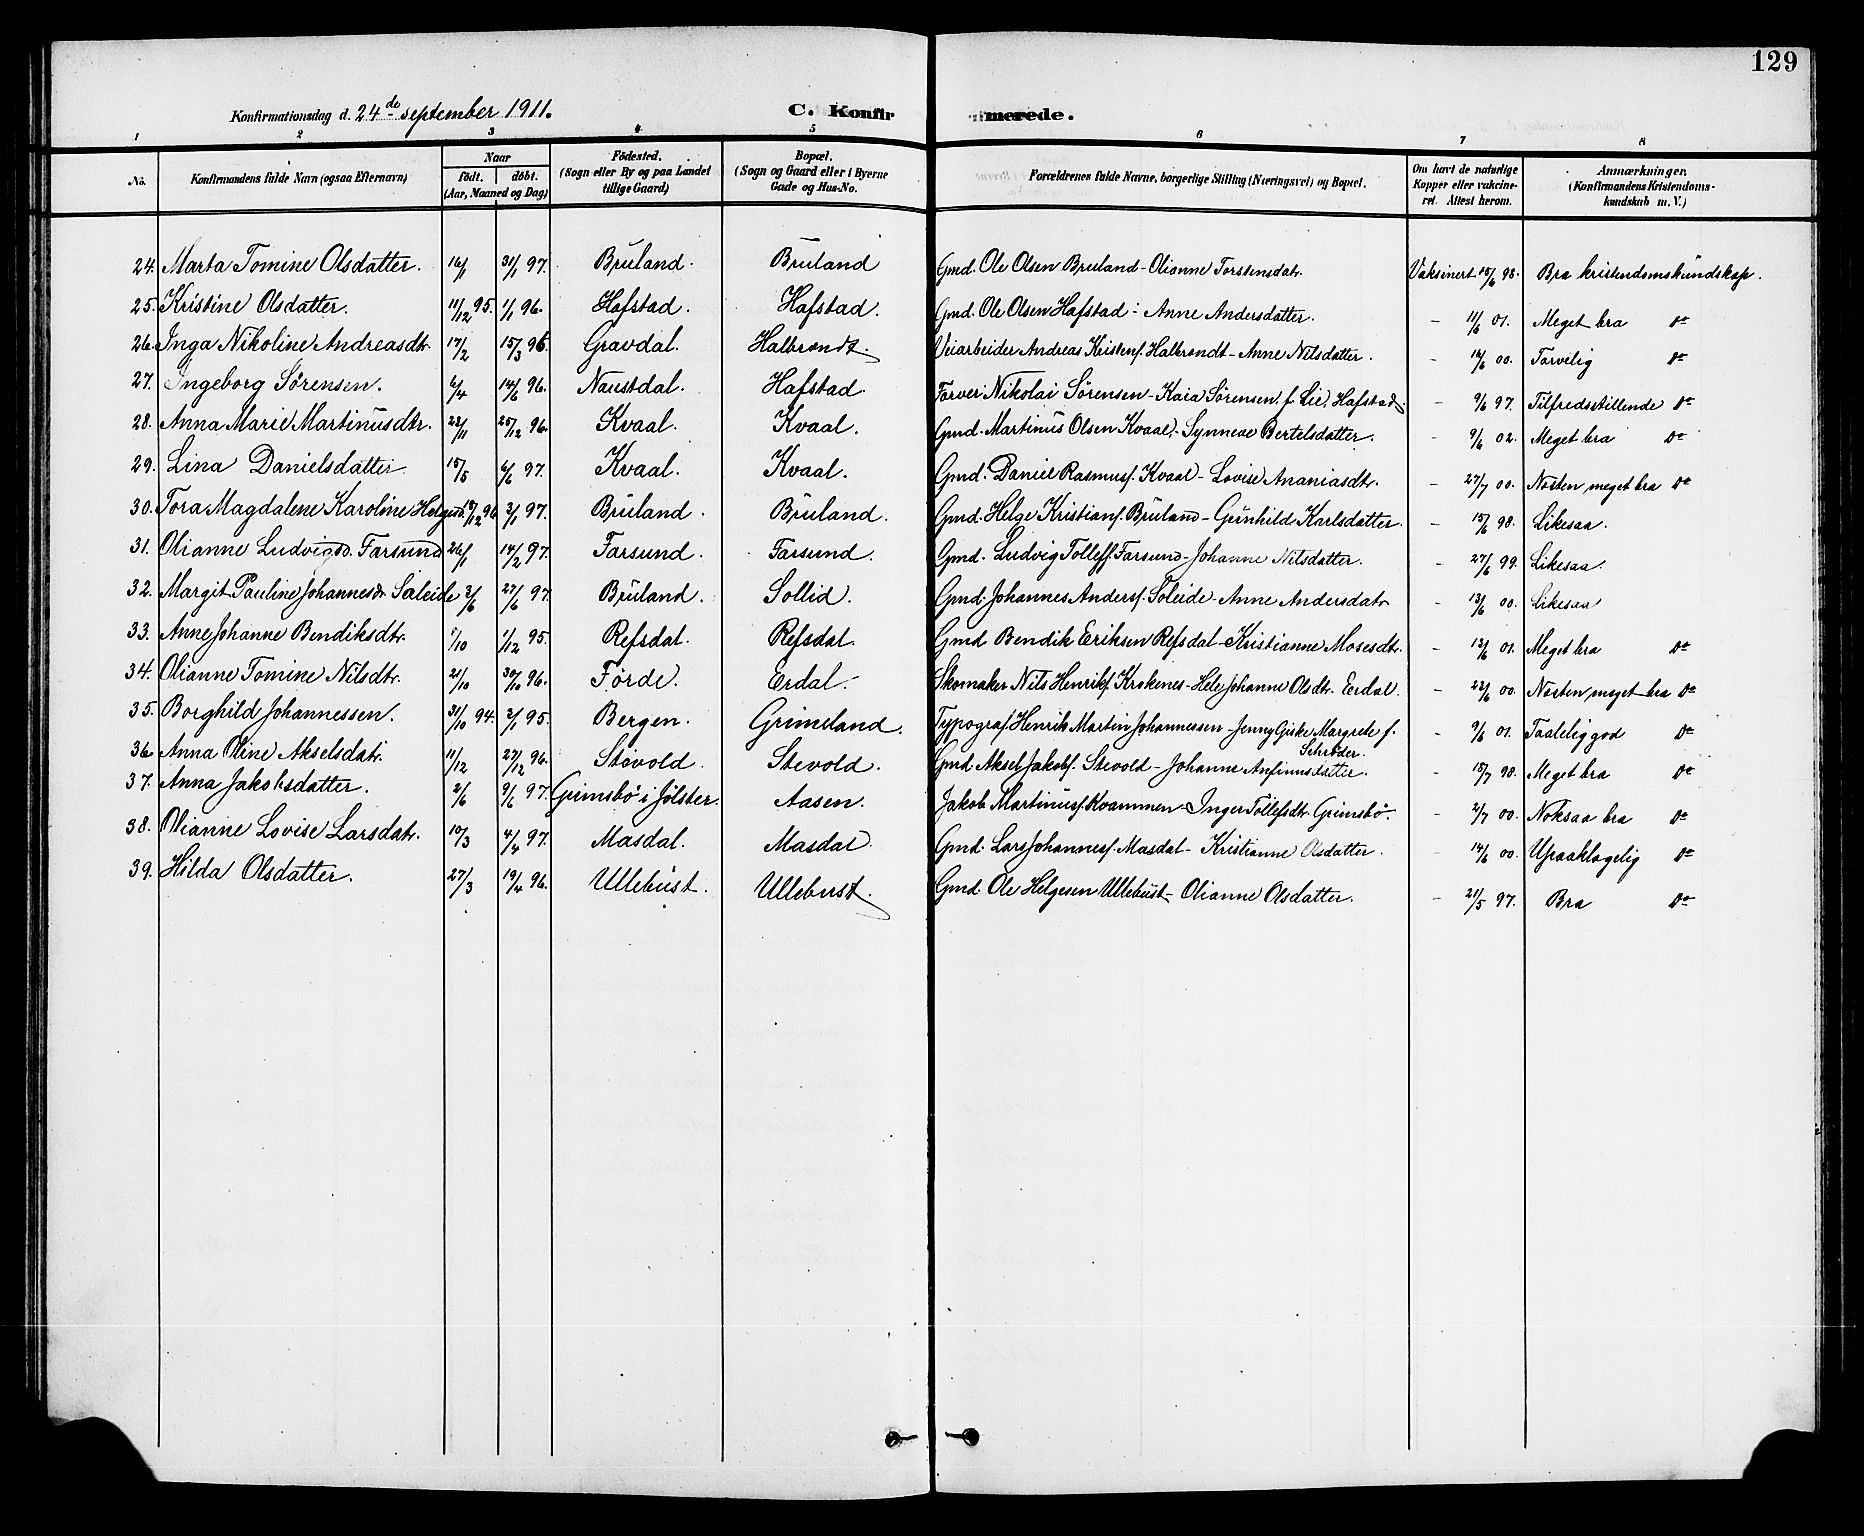 129
Konfirmationsdag d. 24de september 1911. C. Konfirmerede.
1 2 3 4 5 6 7 8
No. Konfirmandens fulde Navn (ogsaa Efternavn) Naar födt. döbt. (Aar, Maaned og Dag) Födested. (Sogn eller By og paa Landet tillige Gaard) Bopæl. (Sogn og Gaard eller i Byerne Gade og Hus-No. Forældrenes fulde Navne, borgerlige Stilling (Næringsvei) og Bopæl. Om havt de naturlige Kopper eller vakcineret. Attest herom. Anmærkninger. (Konfirmandens Kristendomskundskab m. V.)
24. Marta Tomine Olsdatter. 16/1 31/1 97. Bruland. Bruland Gmd. Ole Olsen Bruland - Olianne Torstensdatr. Vaksinert 15/6 98. Bra kristendomskundskap.
25. Kristine Olsdatter. 11/12 95. 1/1 96. Hafstad. Hafstad. Gmd. Ole Olsen Hafstad - Anne Andersdatter. - 11/6 01. Meget bra Do
26. Inga Nikoline Andreasdtr. 17/2 15/3 96. Gravdal. Halbrendt. Veiarbeider Andreas Kristens. Halbrendt - Anne Nilsdatter. - 12/6 00. Tarvelig Do
27. Ingeborg Sörensen. 6/4 14/6 96. Naustdal. Hafstad. Farver Nikolai Sörensen - Kaia Sörensen f. Lie, Hafstad. - 9/6 97. Tilfredsstillende Do
28. Anna Marie Martinusdtr. 23/11 25/12 96. Kvaal. Kvaal. Gmd. Martinus Olsen Kvaal - Synneve Bertelsdatter. - 9/6 02. Meget bra Do
29. Lina Danielsdatter. 15/5 6/6 97. Kvaal. Kvaal. Gmd. Daniel Rasmusf. Kvaal - Lovise Ananiasdtr. - 27/7 00. Næsten meget bra Do
30. Tora Magdalene Karoline Helgesd. 18/12 96 3/1 97. Bruland. Bruland. Gmd. Helge Kristianf. Bruland - Gunhild Karlsdatter. - 15/6 98. Likesaa.
31. Olianne Ludvigsd. Farsund 26/1 14/2 97. Farsund. Farsund. Gmd. Ludvig Tolleff. Farsund - Johanne Nilsdatter. - 27/6 99. Likesaa.
32. Margit Pauline Johannesdr Soleide 3/6 27/6 97. Bruland. Sollid. Gmd. Johannes Andersf. Soleide - Anne Andersdatr - 13/6 00. Likesaa
33. Anne Johanne Bendiksdtr. 1/10 1/12 95. Refsdal. Refsdal. Gmd Bendik Eriksen Refsdal - Kristianne Mosesdtr. - 13/6 01. Meget bra Do
34. Olianne Tomine Nilsdtr. 21/10 30/10 96. Förde. Erdal. Skomaker Nils Henrikf. Krokenes - Hele Johanne Olsdtr. Eerdal. - 23/6 00. Næsten meget bra Do
35. Borghild Johannessen. 31/10 94. 3/1 95. Bergen. Grimeland. Typograf Henrik Martin Johannessen - Jenny Giske Margrete f. Schröder. - 9/6 01. Taalelig god Do
36 Anna Oline Akselsdatr. 11/12 27/12 96. Stövold. Stevold. Gmd Aksel Jakobf. Stevold - Johanne Anfinnsdatter. - 15/7 98. Meget bra Do
37. Anna Jakobsdatter. 2/6 9/6 97. Grimsbö i Jölster. Aasen. Jakob Martinusf. Kvammen - Inger Tollefsdtr Grimsbö. - 2/7 00. Noksaa bra Do
38. Olianne Lovise Larsdatr. 10/3 4/4 97. Masdal. Masdal. Gmd. Lars Johannesf. Masdal - Kristianne Olsdatter. - 14/6 00. Upaaklagelig Do
39. Hilda Olsdatter. 27/3 19/4 96. Ullebust. Ullebust. Gmd Ole Helgesen Ullebust - Olianne Olsdatter. - 21/5 97. Bra Do